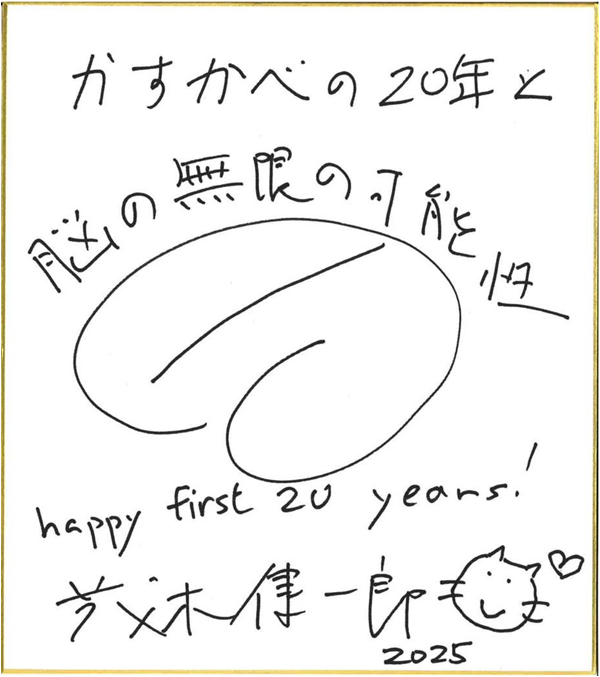 かすかべの20年と
脳の無限の可能性
happy first 20 years!
茂木健一郎
2025